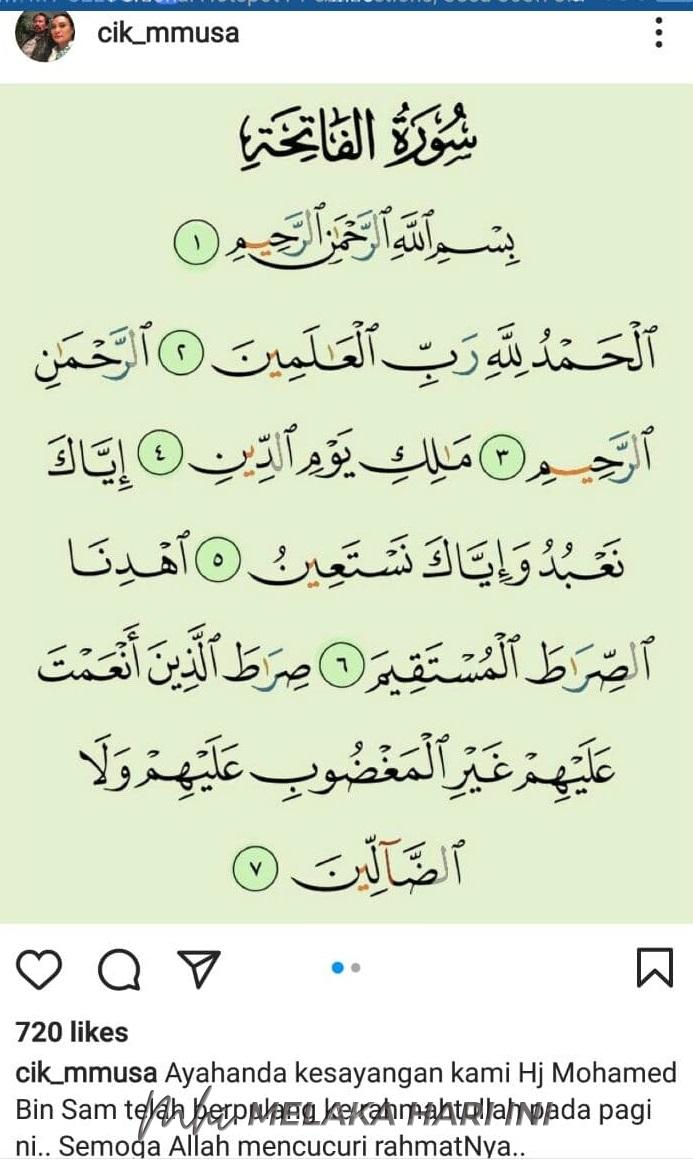 cik_mmusa
سُورَةُ الفَاتِحَةِ
بِسْمِ ٱللَّهِ ٱلرَّحْمَٰنِ ٱلرَّحِيمِ ١
ٱلْحَمْدُ لِلَّهِ رَبِّ ٱلْعَٰلَمِينَ ٢ ٱلرَّحْمَٰنِ
ٱلرَّحِيمِ ٣ مَٰلِكِ يَوْمِ ٱلدِّينِ ٤ إِيَّاكَ
نَعْبُدُ وَإِيَّاكَ نَسْتَعِينُ ٥ ٱهْدِنَا
ٱلصِّرَٰطَ ٱلْمُسْتَقِيمَ ٦ صِرَٰطَ ٱلَّذِينَ أَنْعَمْتَ
عَلَيْهِمْ غَيْرِ ٱلْمَغْضُوبِ عَلَيْهِمْ وَلَا
ٱلضَّآلِّينَ ٧
720 likes
cik_mmusa Ayahanda kesayangan kami Hj Mohamed
Bin Sam telah berpulang ke rahmahtullah pada pagi
ni.. Semoga Allah mencucuri rahmatNya..
MELAKA HARI INI